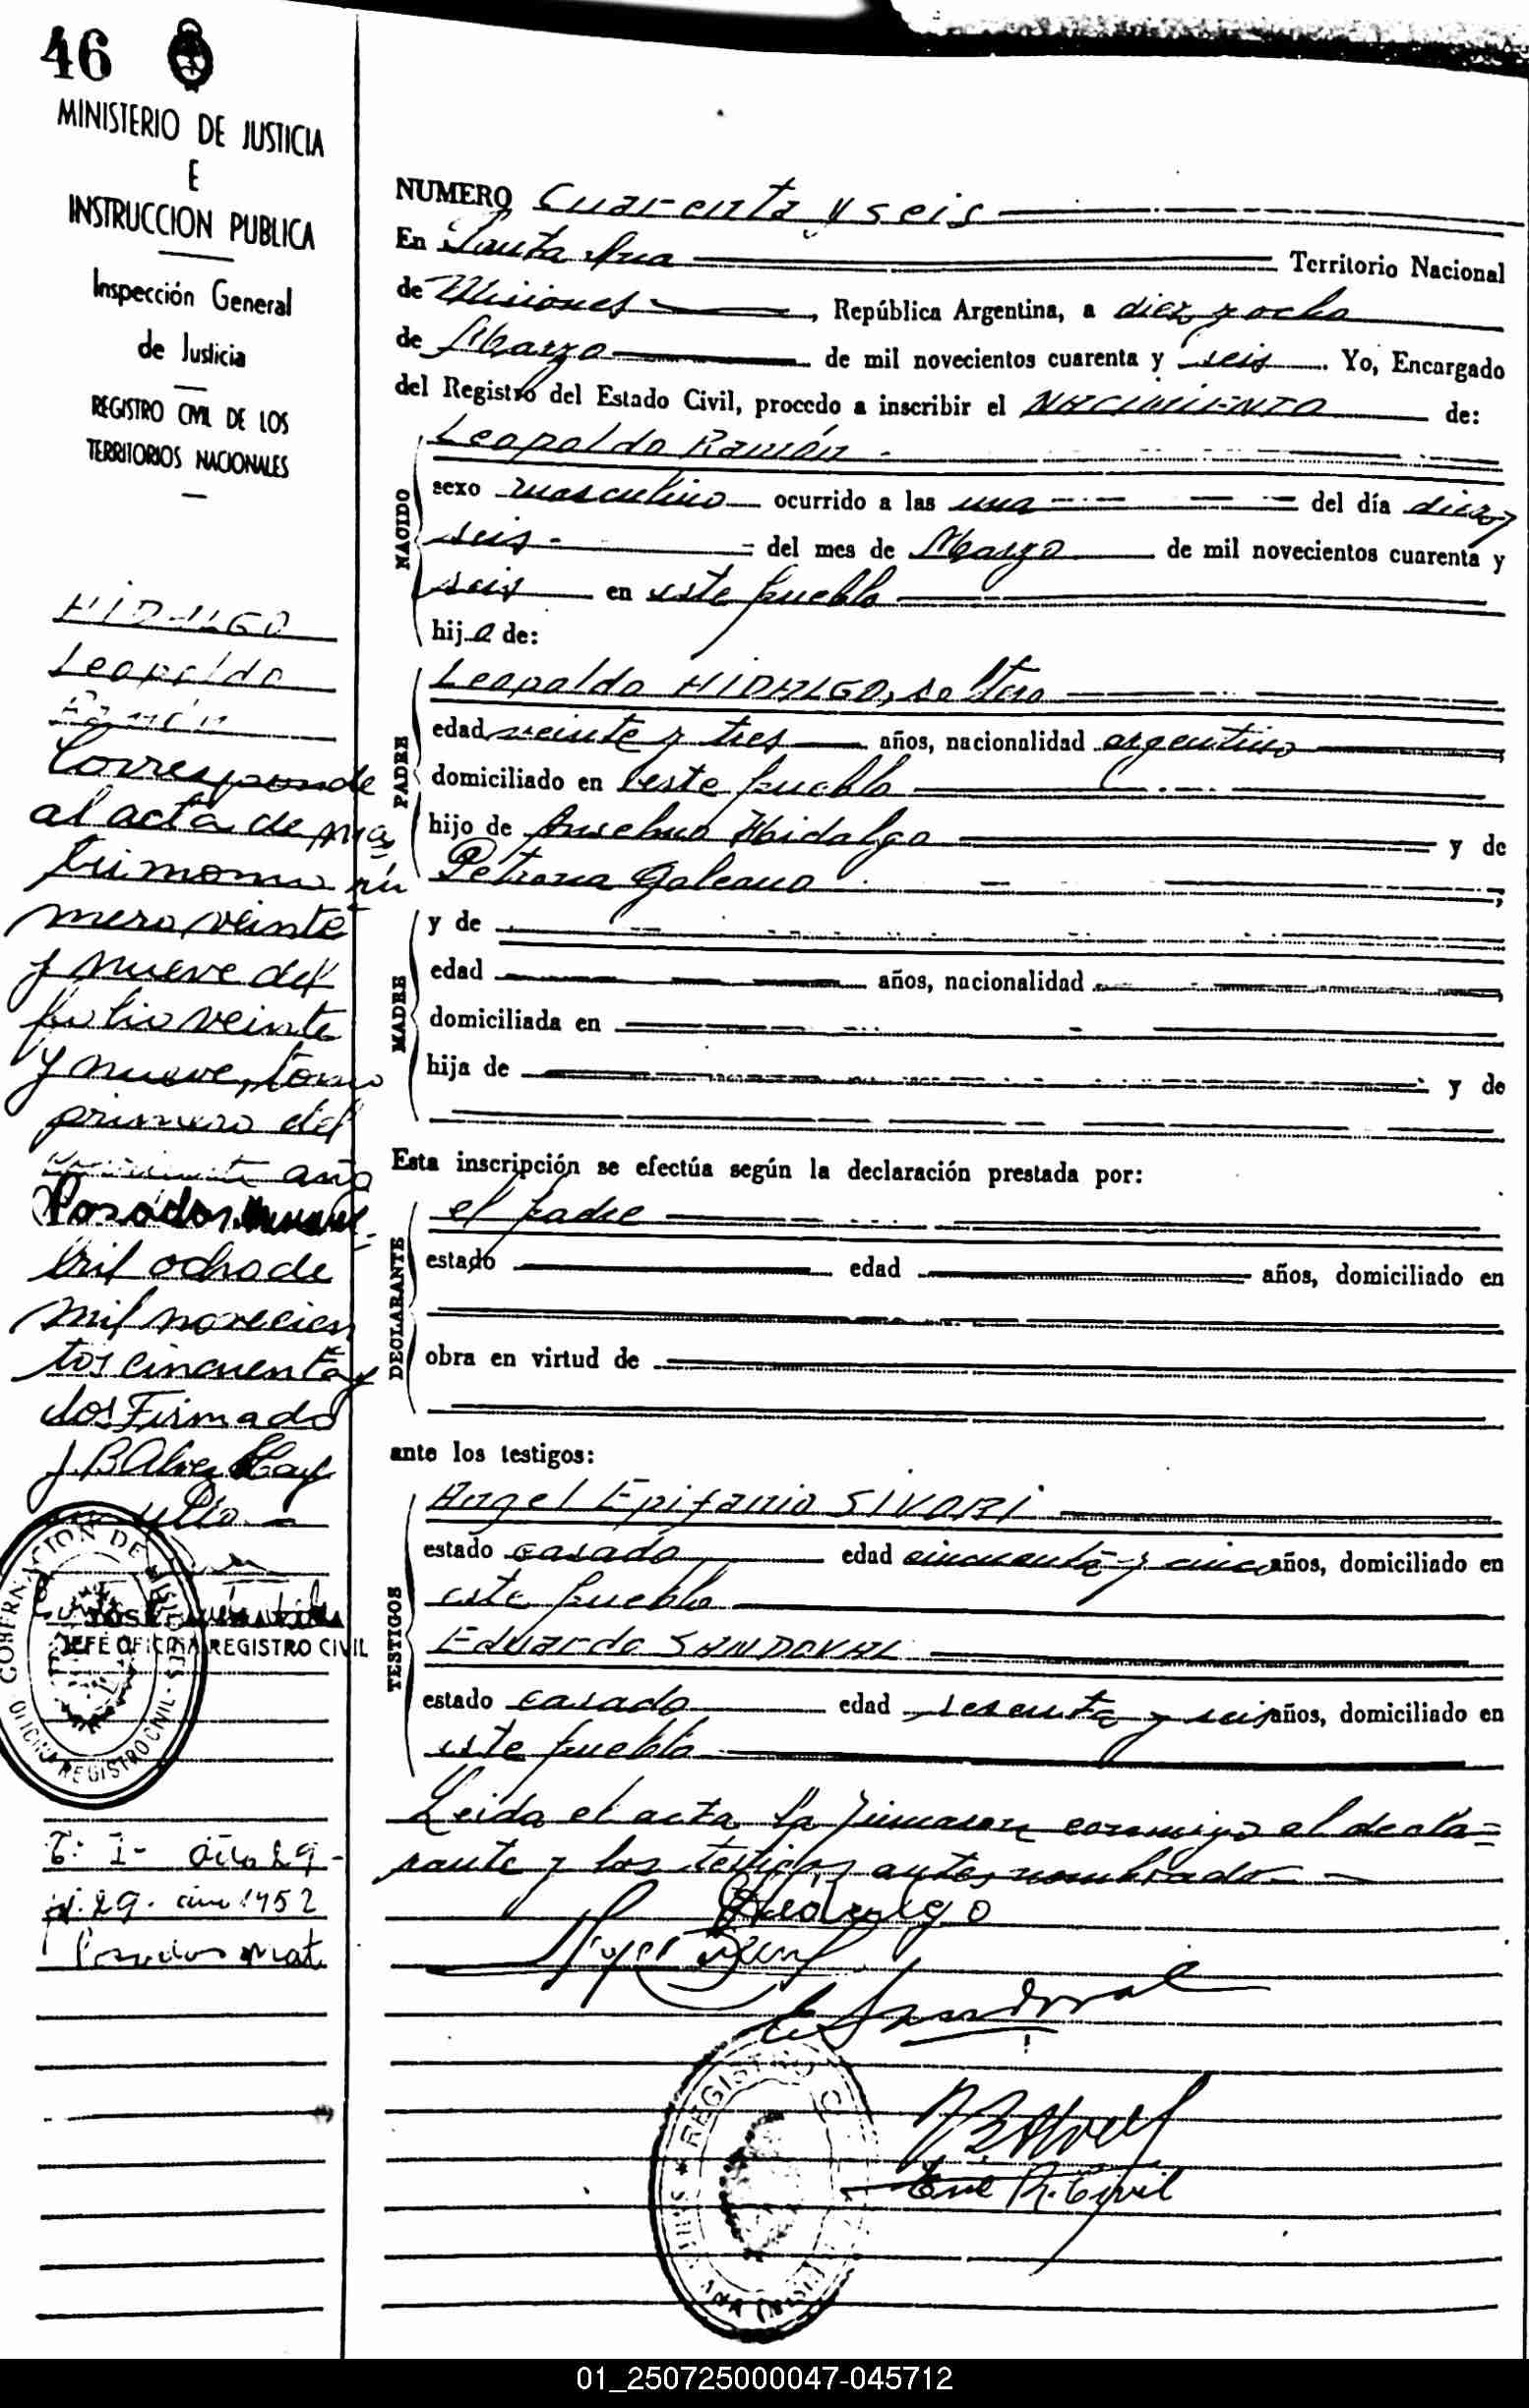 46
MINISTERIO DE JUSTICIA
E
INSTRUCCION PUBLICA
Inspección General
de Justicia
REGISTRO CIVIL DE LOS
TERRITORIOS NACIONALES
HIDALGO
Leopoldo
Ramón
Corresponde
al acta de ma
trimonio nú
mero veinte
y nueve del
folio veinte
y nueve, tomo
primero del
año
Posadas,
bril ocho de
mil novecien
tos cincuenta y
dos Firmado
J. B. Alvez
GOBERNACION DE MISIONES
OFICINA REGISTRO CIVIL
JEFE OFICINA REGISTRO CIVIL
T: I- 29-
fº. 29. año 1952
Posadas Mat.
NUMERO Cuarenta y seis
En Santa Ana Territorio Nacional
de Misiones, República Argentina, a diez y ocho
de Marzo de mil novecientos cuarenta y seis. Yo, Encargado
del Registro del Estado Civil, procedo a inscribir el NACIMIENTO de:
Leopoldo Ramón
NACIDO
sexo masculino ocurrido a las una del día diez y
seis del mes de Marzo de mil novecientos cuarenta y
seis en este pueblo
hijo de:
PADRE
Leopoldo HIDALGO, soltero
edad veinte y tres años, nacionalidad argentino
domiciliado en este pueblo
hijo de Anselmo Hidalgo y de
Petrona Galeano
MADRE
y de
edad años, nacionalidad
domiciliada en
hija de y de
Esta inscripción se efectúa según la declaración prestada por:
DECLARANTE
el padre
estado edad años, domiciliado en
obra en virtud de
ante los testigos:
TESTIGOS
Angel Epifanio SIVORI
estado casado edad cincuenta y cinco años, domiciliado en
este pueblo
Eduardo SANDOVAL
estado casado edad sesenta y seis años, domiciliado en
este pueblo
Leida el acta la firmaron conmigo el decla=
rante y los testigos antes nombrados
Hidalgo
E Sandoval
REGISTRO
SANTA ANA
J B Alvez
Enc R. Civil
01_250725000047-045712